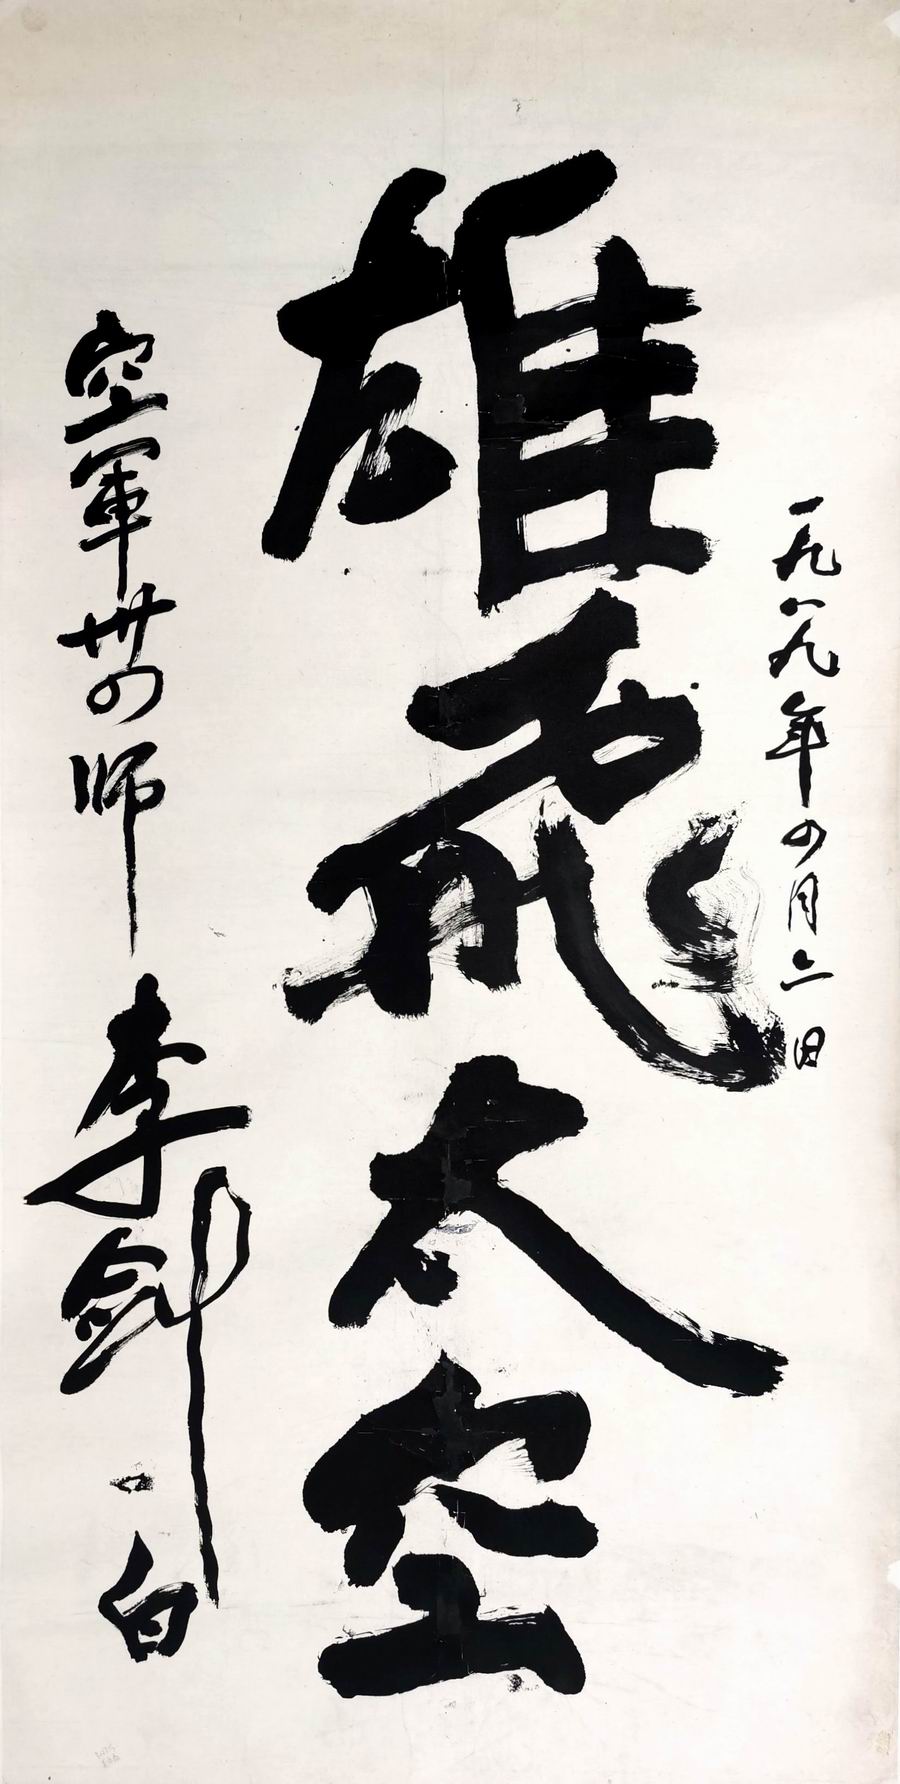 一九八九年四月二日
雄飞太空
空軍卅四师
李剑
白